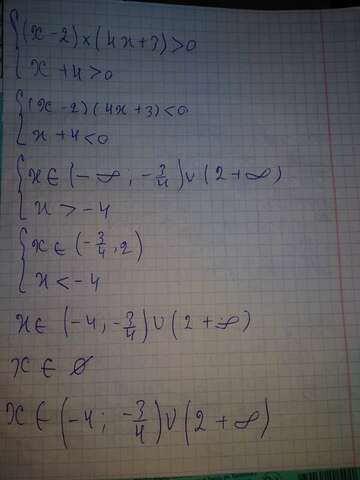 (x-2)×(4x+3)>0
x+4>0
(x-2)(4x+3)<0
x+4<0
x∈(-∞; -3/4)∪(2+∞)
x>-4
x∈(-3/4,2)
x<-4
x∈(-4,-3/4)∪(2+∞)
x∈∅
x∈(-4; -3/4)∪(2+∞)